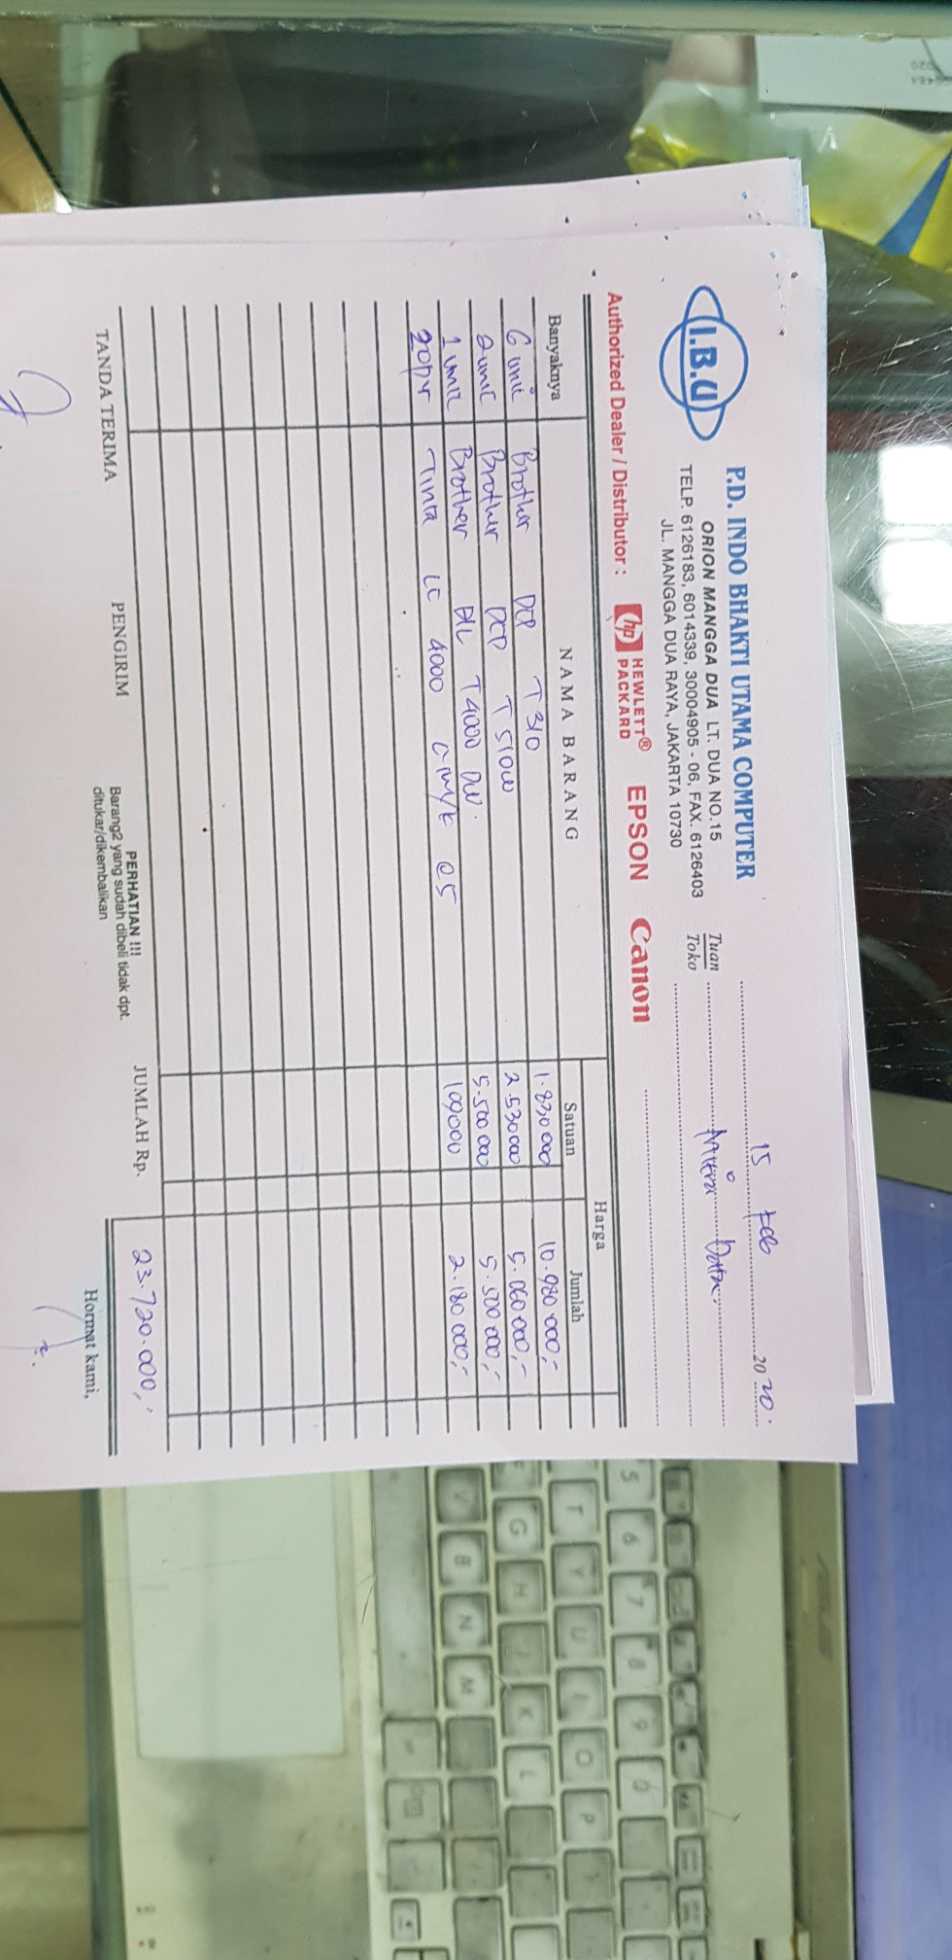 I.B.U
P.D. INDO BHAKTI UTAMA COMPUTER
ORION MANGGA DUA LT. DUA NO.15
TELP. 6126183, 6014339, 30004905 - 06, FAX. 6126403
JL. MANGGA DUA RAYA, JAKARTA 10730
15 Feb 2020.
Tuan
Toko
Authorized Dealer / Distributor :
hp HEWLETT® PACKARD EPSON Canon
Banyaknya NAMA BARANG Harga
Satuan Jumlah
6 unit Brother DCP T310 1.830.000 10.980.000,-
2 unit Brother DCP T510W 2.530.000 5.060.000,-
1 unit Brother T4000 DW. 5.500.000 5.500.000,-
20 Tinta LC 4000 @5 109000 2.180.000,-
JUMLAH Rp. 23.720.000,-
TANDA TERIMA PENGIRIM
PERHATIAN !!!
Barang2 yang sudah dibeli tidak dpt.
ditukar/dikembalikan
Hormat kami,
5 6 7 8 9 0
T Y U O P
G H J K L
V B N M